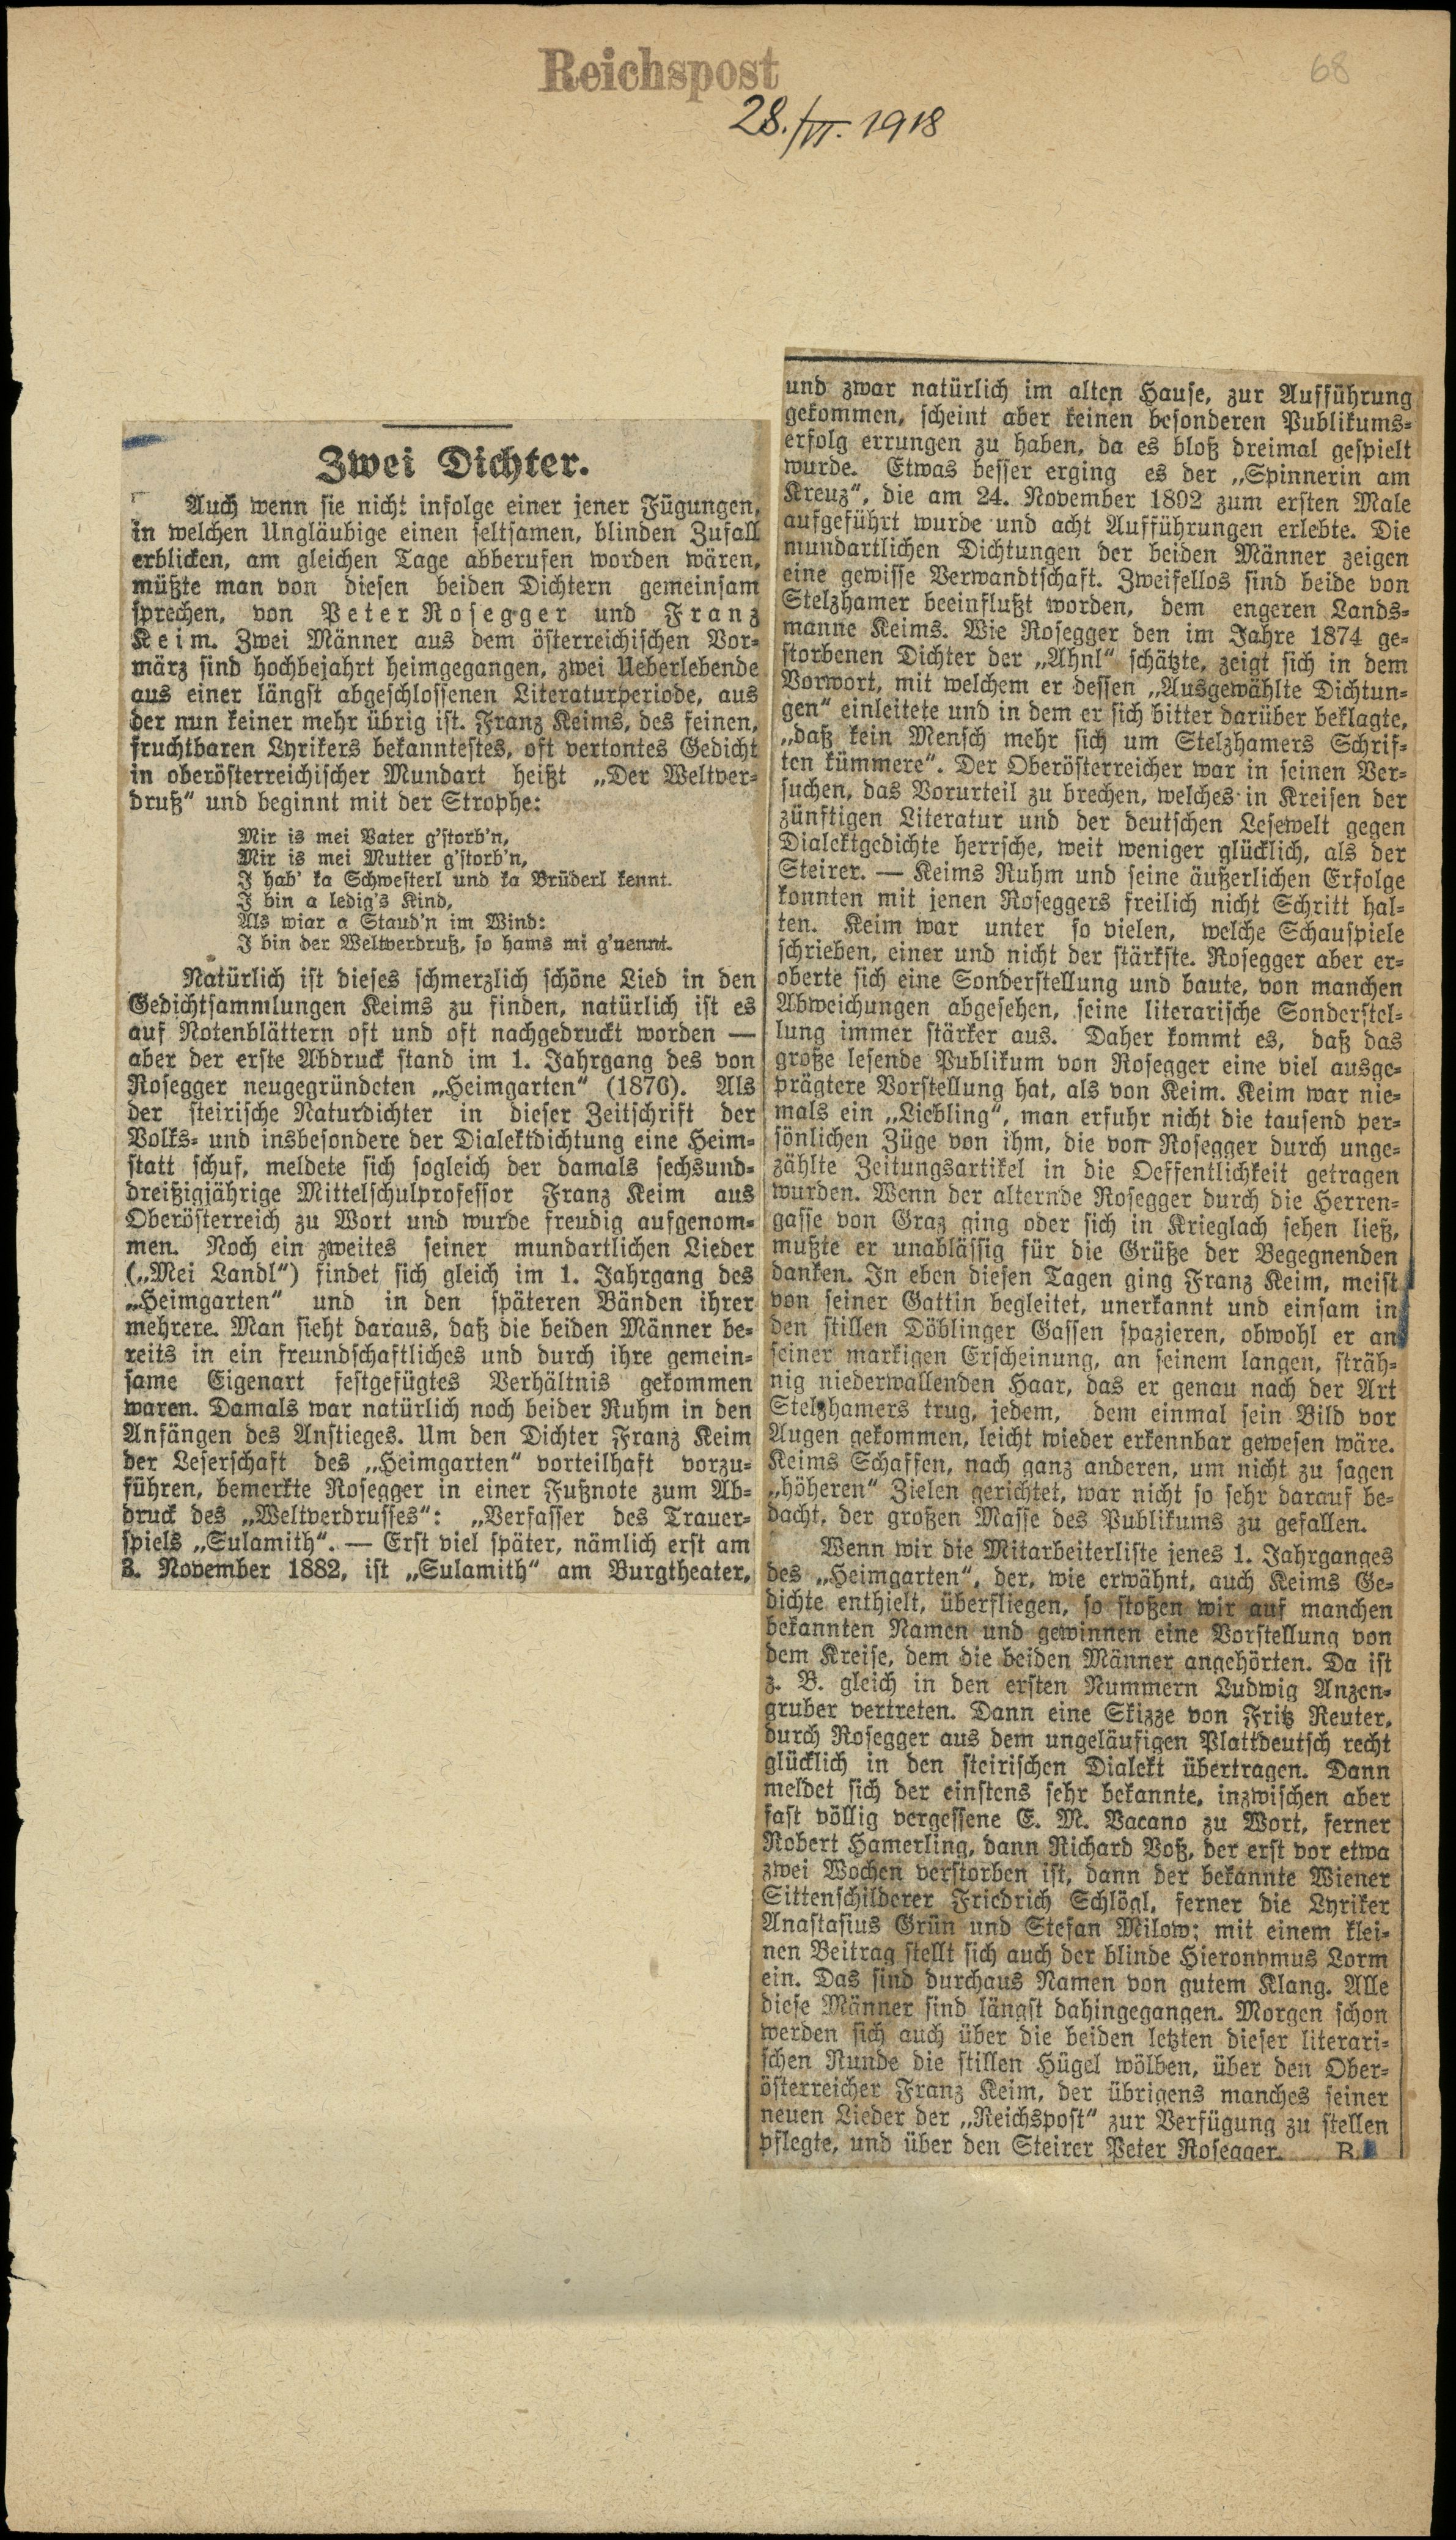 Reichspost
68
28./VI. 1918
Zwei Dichter.
Auch wenn sie nicht infolge einer jener Fügungen,
in welchen Ungläubige einen seltsamen, blinden Zufall
erblicken, am gleichen Tage abberufen worden wären,
müßte man von diesen beiden Dichtern gemeinsam
sprechen, von Peter Rosegger und Franz
Keim. Zwei Männer aus dem österreichischen Vor-
märz sind hochbejahrt heimgegangen, zwei Ueberlebende
aus einer längst abgeschlossenen Literaturperiode, aus
der nun keiner mehr übrig ist. Franz Keims, des feinen,
fruchtbaren Lyrikers bekanntestes, oft vertontes Gedicht
in oberösterreichischer Mundart heißt „Der Weltver-
druß“ und beginnt mit der Strophe:
Mir is mei Vater g'storb'n,
Mir is mei Mutter g'storb'n,
I hab' ka Schwesterl und ka Brüderl kennt.
I bin a ledig's Kind,
Als wiar a Staud'n im Wind:
I bin der Weltverdruß, so hams mi g'nennt.
Natürlich ist dieses schmerzlich schöne Lied in den
Gedichtsammlungen Keims zu finden, natürlich ist es
auf Notenblättern oft und oft nachgedruckt worden —
aber der erste Abdruck stand im 1. Jahrgang des von
Rosegger neugegründeten „Heimgarten“ (1876). Als
der steirische Naturdichter in dieser Zeitschrift der
Volks- und insbesondere der Dialektdichtung eine Heim-
statt schuf, meldete sich sogleich der damals sechsund-
dreißigjährige Mittelschulprofessor Franz Keim aus
Oberösterreich zu Wort und wurde freudig aufgenom-
men. Noch ein zweites seiner mundartlichen Lieder
(„Mei Landl“) findet sich gleich im 1. Jahrgang des
„Heimgarten“ und in den späteren Bänden ihrer
mehrere. Man sieht daraus, daß die beiden Männer be-
reits in ein freundschaftliches und durch ihre gemein-
same Eigenart festgefügtes Verhältnis gekommen
waren. Damals war natürlich noch beider Ruhm in den
Anfängen des Anstieges. Um den Dichter Franz Keim
der Leserschaft des „Heimgarten“ vorteilhaft vorzu-
führen, bemerkte Rosegger in einer Fußnote zum Ab-
druck des „Weltverdrusses“: „Verfasser des Trauer-
spiels „Sulamith“. — Erst viel später, nämlich erst am
3. November 1882, ist „Sulamith“ am Burgtheater,
und zwar natürlich im alten Hause, zur Aufführung
gekommen, scheint aber keinen besonderen Publikums-
erfolg errungen zu haben, da es bloß dreimal gespielt
wurde. Etwas besser erging es der „Spinnerin am
Kreuz“, die am 24. November 1892 zum ersten Male
aufgeführt wurde und acht Aufführungen erlebte. Die
mundartlichen Dichtungen der beiden Männer zeigen
eine gewisse Verwandtschaft. Zweifellos sind beide von
Stelzhamer beeinflußt worden, dem engeren Lands-
manne Keims. Wie Rosegger den im Jahre 1874 ge-
storbenen Dichter der „Ahnl“ schätzte, zeigt sich in dem
Vorwort, mit welchem er dessen „Ausgewählte Dichtun-
gen“ einleitete und in dem er sich bitter darüber beklagte,
„daß kein Mensch mehr sich um Stelzhamers Schrif-
ten kümmere“. Der Oberösterreicher war in seinen Ver-
suchen, das Vorurteil zu brechen, welches in Kreisen der
zünftigen Literatur und der deutschen Lesewelt gegen
Dialektgedichte herrsche, weit weniger glücklich, als der
Steirer. — Keims Ruhm und seine äußerlichen Erfolge
konnten mit jenen Roseggers freilich nicht Schritt hal-
ten. Keim war unter so vielen, welche Schauspiele
schrieben, einer und nicht der stärkste. Rosegger aber er-
oberte sich eine Sonderstellung und baute, von manchen
Abweichungen abgesehen, seine literarische Sonderstel-
lung immer stärker aus. Daher kommt es, daß das
große lesende Publikum von Rosegger eine viel ausge-
prägtere Vorstellung hat, als von Keim. Keim war nie-
mals ein „Liebling“, man erfuhr nicht die tausend per-
sönlichen Züge von ihm, die von Rosegger durch unge-
zählte Zeitungsartikel in die Oeffentlichkeit getragen
wurden. Wenn der alternde Rosegger durch die Herren-
gasse von Graz ging oder sich in Krieglach sehen ließ,
mußte er unablässig für die Grüße der Begegnenden
danken. In eben diesen Tagen ging Franz Keim, meist
von seiner Gattin begleitet, unerkannt und einsam in
den stillen Döblinger Gassen spazieren, obwohl er an
seiner markigen Erscheinung, an seinem langen, sträh-
nig niederwallenden Haar, das er genau nach der Art
Stelzhamers trug, jedem, dem einmal sein Bild vor
Augen gekommen, leicht wieder erkennbar gewesen wäre.
Keims Schaffen, nach ganz anderen, um nicht zu sagen
„höheren“ Zielen gerichtet, war nicht so sehr darauf be-
dacht, der großen Masse des Publikums zu gefallen.
Wenn wir die Mitarbeiterliste jenes 1. Jahrganges
des „Heimgarten“, der, wie erwähnt, auch Keims Ge-
dichte enthielt, überfliegen, so stoßen wir auf manchen
bekannten Namen und gewinnen eine Vorstellung von
dem Kreise, dem die beiden Männer angehörten. Da ist
z. B. gleich in den ersten Nummern Ludwig Anzen-
gruber vertreten. Dann eine Skizze von Fritz Reuter,
durch Rosegger aus dem ungeläufigen Plattdeutsch recht
glücklich in den steirischen Dialekt übertragen. Dann
meldet sich der einstens sehr bekannte, inzwischen aber
fast völlig vergessene E. M. Vacano zu Wort, ferner
Robert Hamerling, dann Richard Voß, der erst vor etwa
zwei Wochen verstorben ist, dann der bekannte Wiener
Sittenschilderer Friedrich Schlögl, ferner die Lyriker
Anastasius Grün und Stefan Milow; mit einem klei-
nen Beitrag stellt sich auch der blinde Hieronymus Lorm
ein. Das sind durchaus Namen von gutem Klang. Alle
diese Männer sind längst dahingegangen. Morgen schon
werden sich auch über die beiden letzten dieser literari-
schen Runde die stillen Hügel wölben, über den Ober-
österreicher Franz Keim, der übrigens manches seiner
neuen Lieder der „Reichspost“ zur Verfügung zu stellen
pflegte, und über den Steirer Peter Rosegger. B.